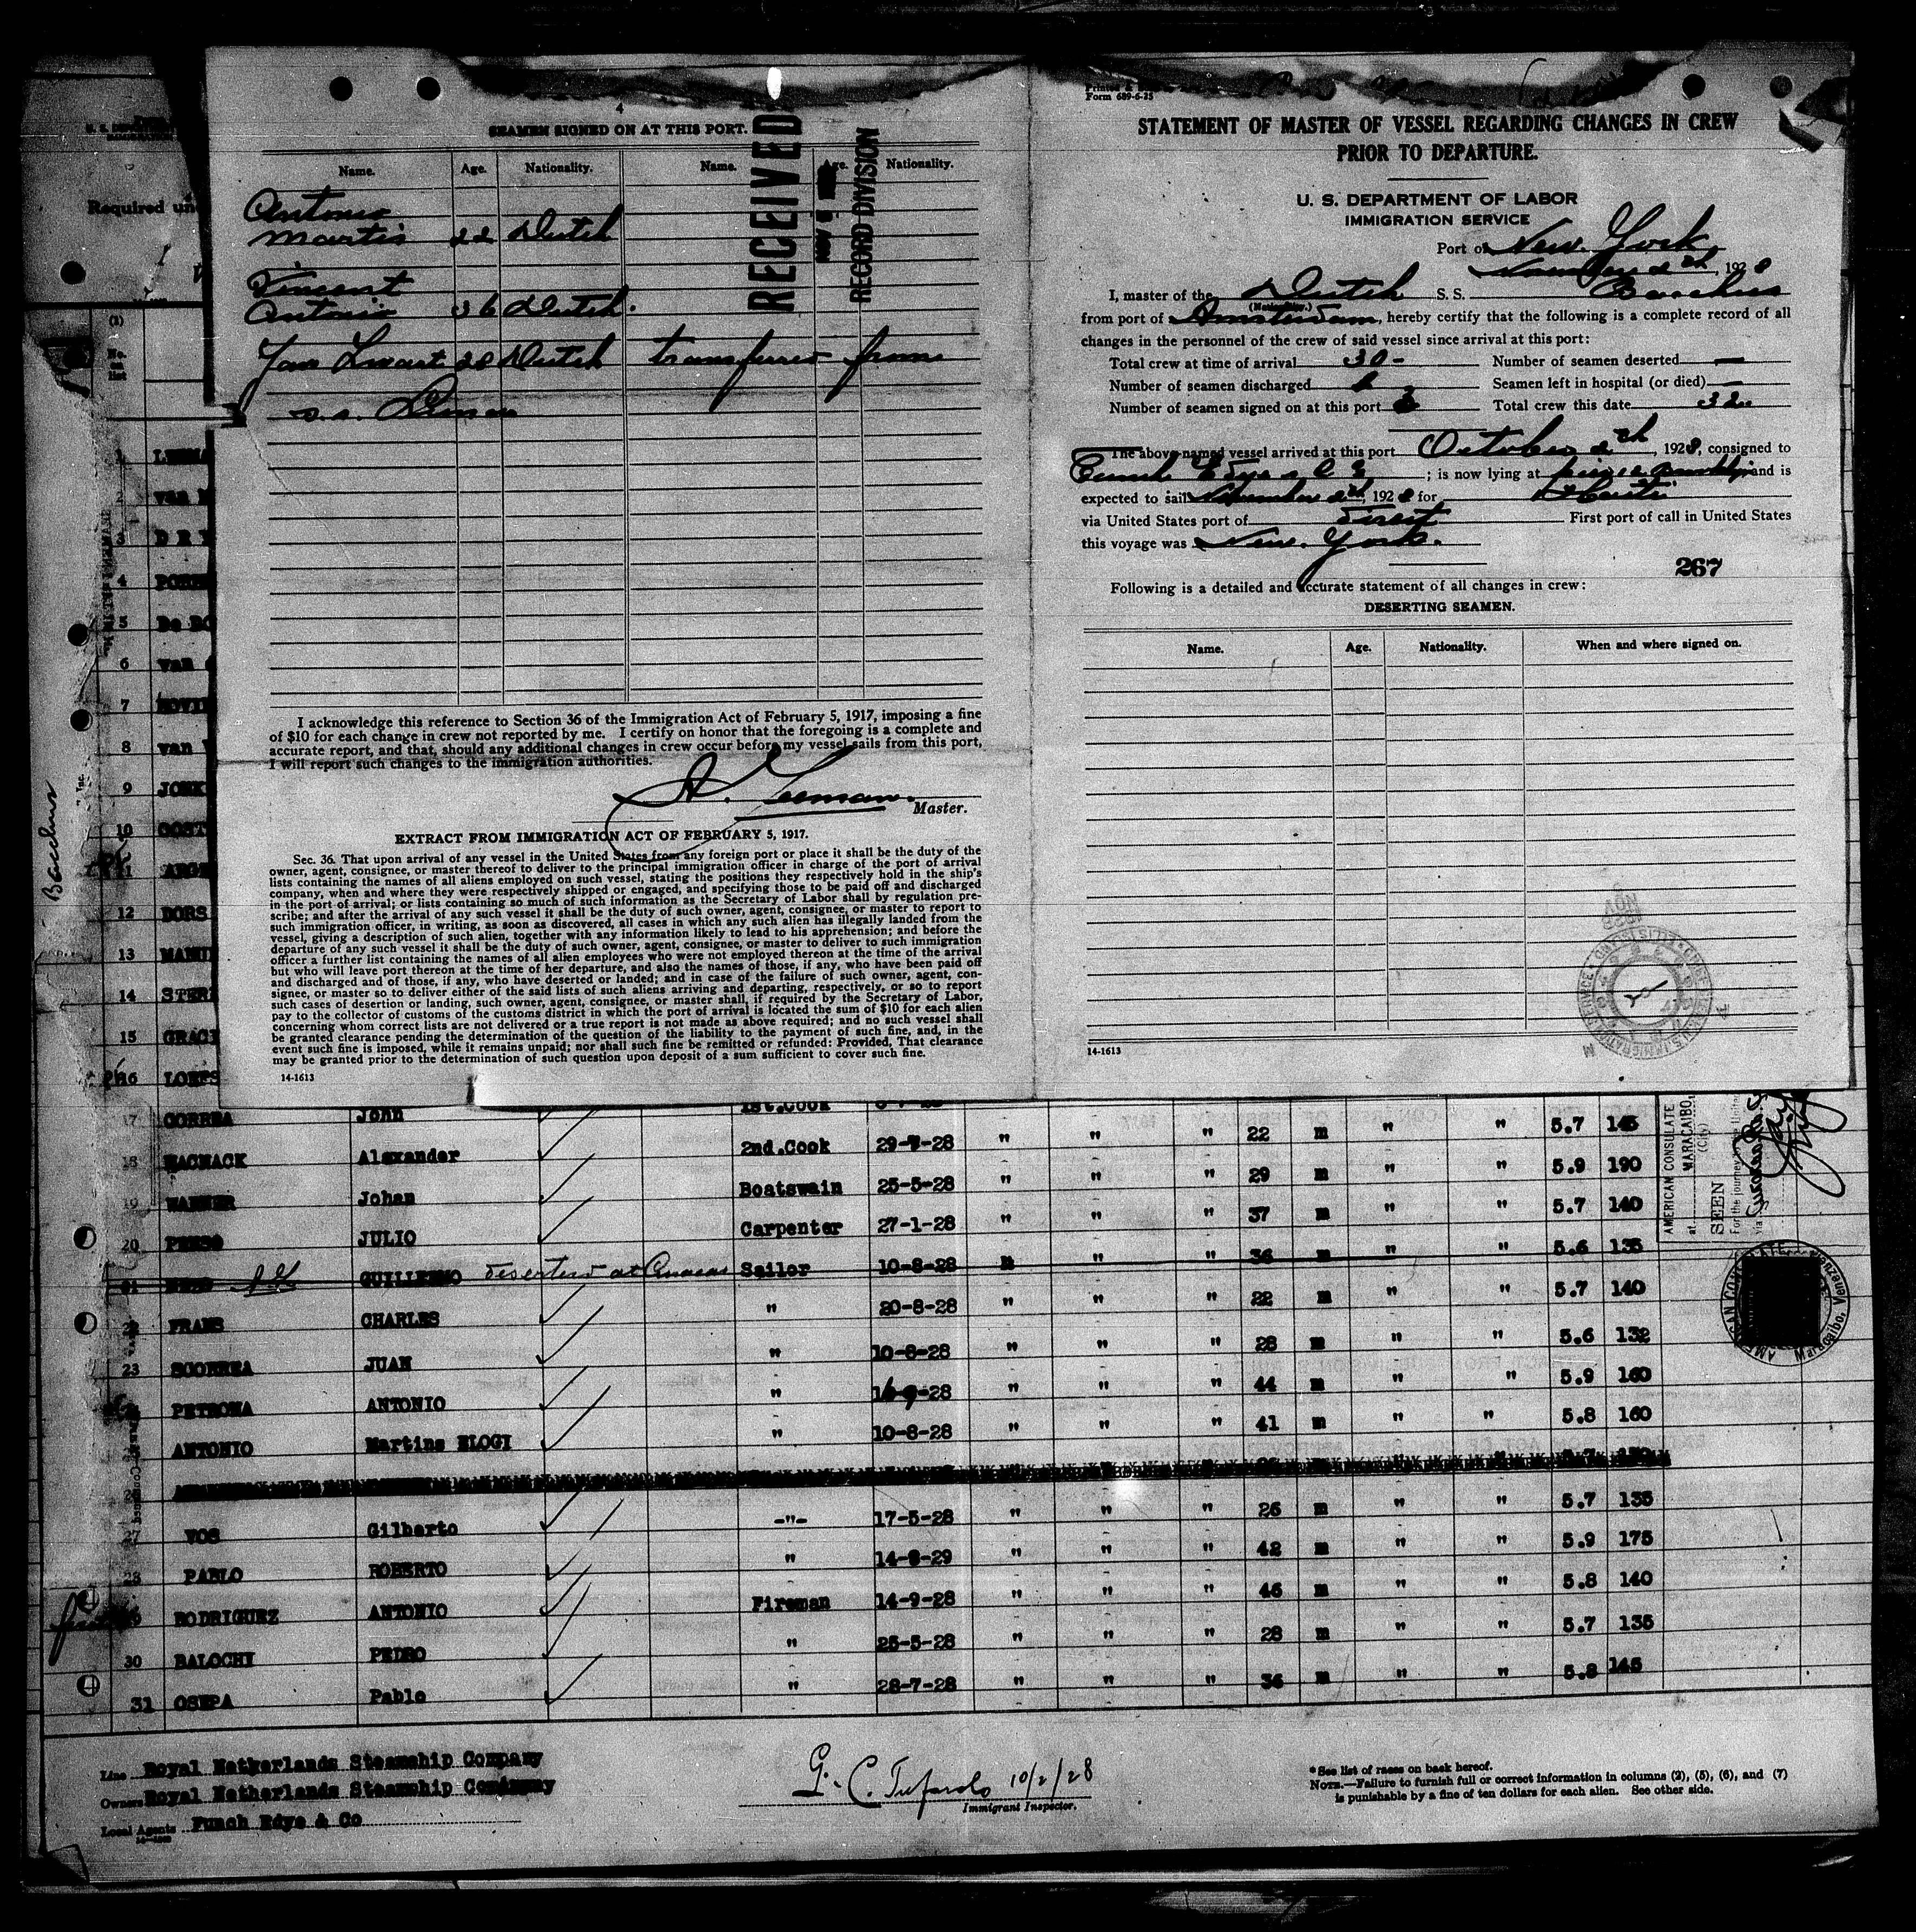 4
SEAMEN SIGNED ON AT THIS PORT.
Name. Age. Nationality. Name. Age. Nationality.
Antonio
Martis 22 Dutch
Vincent
Antonio 36 Dutch.
Jan Zwart 28 Dutch transferred from
s.s.
RECEIVED
NOV 5
RECORD DIVISION
I acknowledge this reference to Section 36 of the Immigration Act of February 5, 1917, imposing a fine
of $10 for each change in crew not reported by me. I certify on honor that the foregoing is a complete and
accurate report, and that, should any additional changes in crew occur before my vessel sails from this port,
I will report such changes to the immigration authorities.
A. Leeman.
Master.
EXTRACT FROM IMMIGRATION ACT OF FEBRUARY 5, 1917.
Sec. 36. That upon arrival of any vessel in the United States from any foreign port or place it shall be the duty of the
owner, agent, consignee, or master thereof to deliver to the principal immigration officer in charge of the port of arrival
lists containing the names of all aliens employed on such vessel, stating the positions they respectively hold in the ship's
company, when and where they were respectively shipped or engaged, and specifying those to be paid off and discharged
in the port of arrival; or lists containing so much of such information as the Secretary of Labor shall by regulation pre-
scribe; and after the arrival of any such vessel it shall be the duty of such owner, agent, consignee, or master to report to
such immigration officer, in writing, as soon as discovered, all cases in which any such alien has illegally landed from the
vessel, giving a description of such alien, together with any information likely to lead to his apprehension; and before the
departure of any such vessel it shall be the duty of such owner, agent, consignee, or master to deliver to such immigration
officer a further list containing the names of all alien employees who were not employed thereon at the time of the arrival
but who will leave port thereon at the time of her departure, and also the names of those, if any, who have been paid off
and discharged and of those, if any, who have deserted or landed; and in case of the failure of such owner, agent, con-
signee, or master so to deliver either of the said lists of such aliens arriving and departing, respectively, or so to report
such cases of desertion or landing, such owner, agent, consignee, or master shall, if required by the Secretary of Labor,
pay to the collector of customs of the customs district in which the port of arrival is located the sum of $10 for each alien
concerning whom correct lists are not delivered or a true report is not made as above required; and no such vessel shall
be granted clearance pending the determination of the question of the liability to the payment of such fine, and, in the
event such fine is imposed, while it remains unpaid; nor shall such fine be remitted or refunded: Provided, That clearance
may be granted prior to the determination of such question upon deposit of a sum sufficient to cover such fine.
14-1613
Form 689-6-25
STATEMENT OF MASTER OF VESSEL REGARDING CHANGES IN CREW
PRIOR TO DEPARTURE.
U. S. DEPARTMENT OF LABOR
IMMIGRATION SERVICE
Port of New York
November 2th, 1928
I, master of the Dutch S. S. Bacchus
(Nationality.)
from port of Amsterdam, hereby certify that the following is a complete record of all
changes in the personnel of the crew of said vessel since arrival at this port:
Total crew at time of arrival 30- Number of seamen deserted —
Number of seamen discharged Seamen left in hospital (or died) —
Number of seamen signed on at this port 3 Total crew this date 32
The above-named vessel arrived at this port October 2th, 1928, consigned to
Funch Edye & Co; is now lying at and is
expected to sail November 2d, 1928 for Haiti
via United States port of direct First port of call in United States
this voyage was New York.
267
Following is a detailed and accurate statement of all changes in crew:
DESERTING SEAMEN.
Name. Age. Nationality. When and where signed on.
14-1613
Required un
Bacchus
(1)
No.
on
list
1
2 van
3 D R
4
5 De
6 van
7
8 van
9
10 OOST
11
12 DORS
13
14 STER
15 GRAC
16
17 CORREA John 1st.Cook
18 Alexander 2nd.Cook 29-7-28 " " " 22 m " " 5.7 145
19 WANNER Johan Boatswain 25-5-28 " " " 29 m " " 5.9 190
20 JULIO Carpenter 27-1-28 " " " 37 m " " 5.7 140
21 GUILLERMO deserted at Curacao Sailor 10-8-28 " " " 36 m " " 5.6 135
22 FRANS CHARLES " 20-8-28 " " " 22 m " " 5.7 140
23 SCORREA JUAN " 10-8-28 " " " 28 m " " 5.6 132
PETRONA ANTONIO " -28 " " " 44 m " " 5.9 160
25 ANTONIO Martins ELOGI " 10-8-28 " " " 41 m " " 5.8 160
26
27 VOS Gilberto -"- 17-5-28 " " " 26 m " " 5.7 135
28 PABLO ROBERTO " 14-8-29 " " " 42 m " " 5.9 175
RODRIGUEZ ANTONIO Fireman 14-9-28 " " " 46 m " " 5.8 140
30 BALOCHI PEDRO " 25-5-28 " " " 28 m " " 5.7 135
31 OSEPA Pablo " 28-7-28 " " " 36 m " " 5.8 145
AMERICAN CONSULATE
at MARACAIBO,
(City)
SEEN
For the journey to the United
via
AMERICAN CON
Maracaibo, Venezuela
Line Royal Netherlands Steamship Company
Owners Royal Netherlands Steamship Company
Local Agents Funch Edye & Co
G. C. Tufarolo 10/2/28
Immigrant Inspector.
* See list of races on back hereof.
NOTE.—Failure to furnish full or correct information in columns (2), (5), (6), and (7)
is punishable by a fine of ten dollars for each alien. See other side.